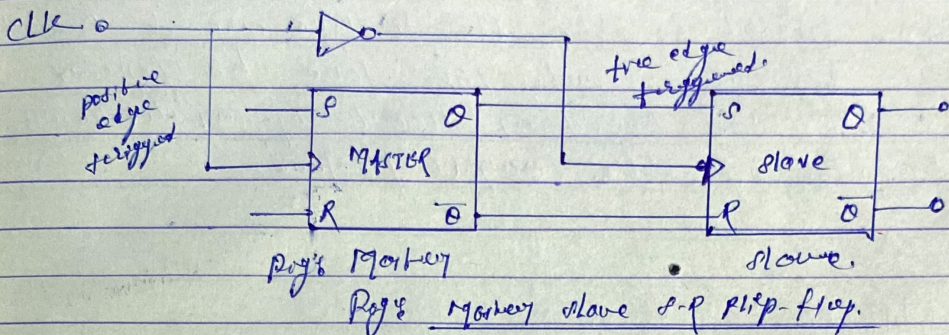 CLK
positive
edge
triggered
+ve edge
triggered.
S Q
MASTER
R Q̅
S Q
slave
R Q̅
Fig: Master
slave.
Fig: Master slave S-R flip-flop.